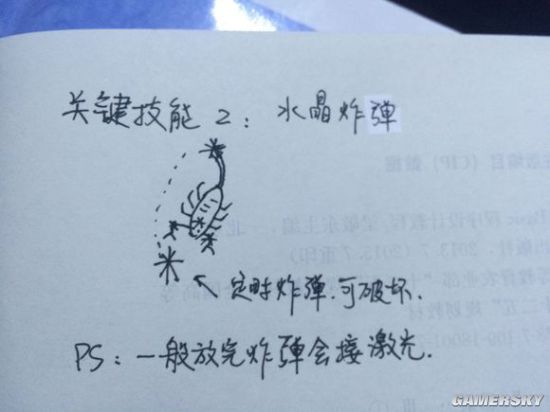 关键技能2：水晶炸弹
定时炸弹.可破坏.
PS：一般放完炸弹会接激光.
GAMERSKY